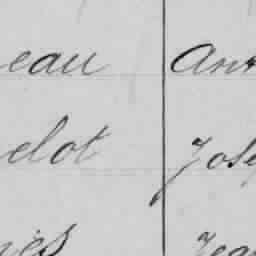 eau Ant
elot Jose
nès Jean